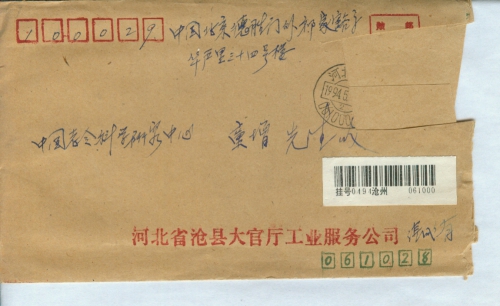 100029
中国北京德胜门外祁家豁子
华严里三十四号楼
中国 科学研究中心
先生收
1994.5
挂号0494沧州 061000
河北省沧县大官厅工业服务公司
061028